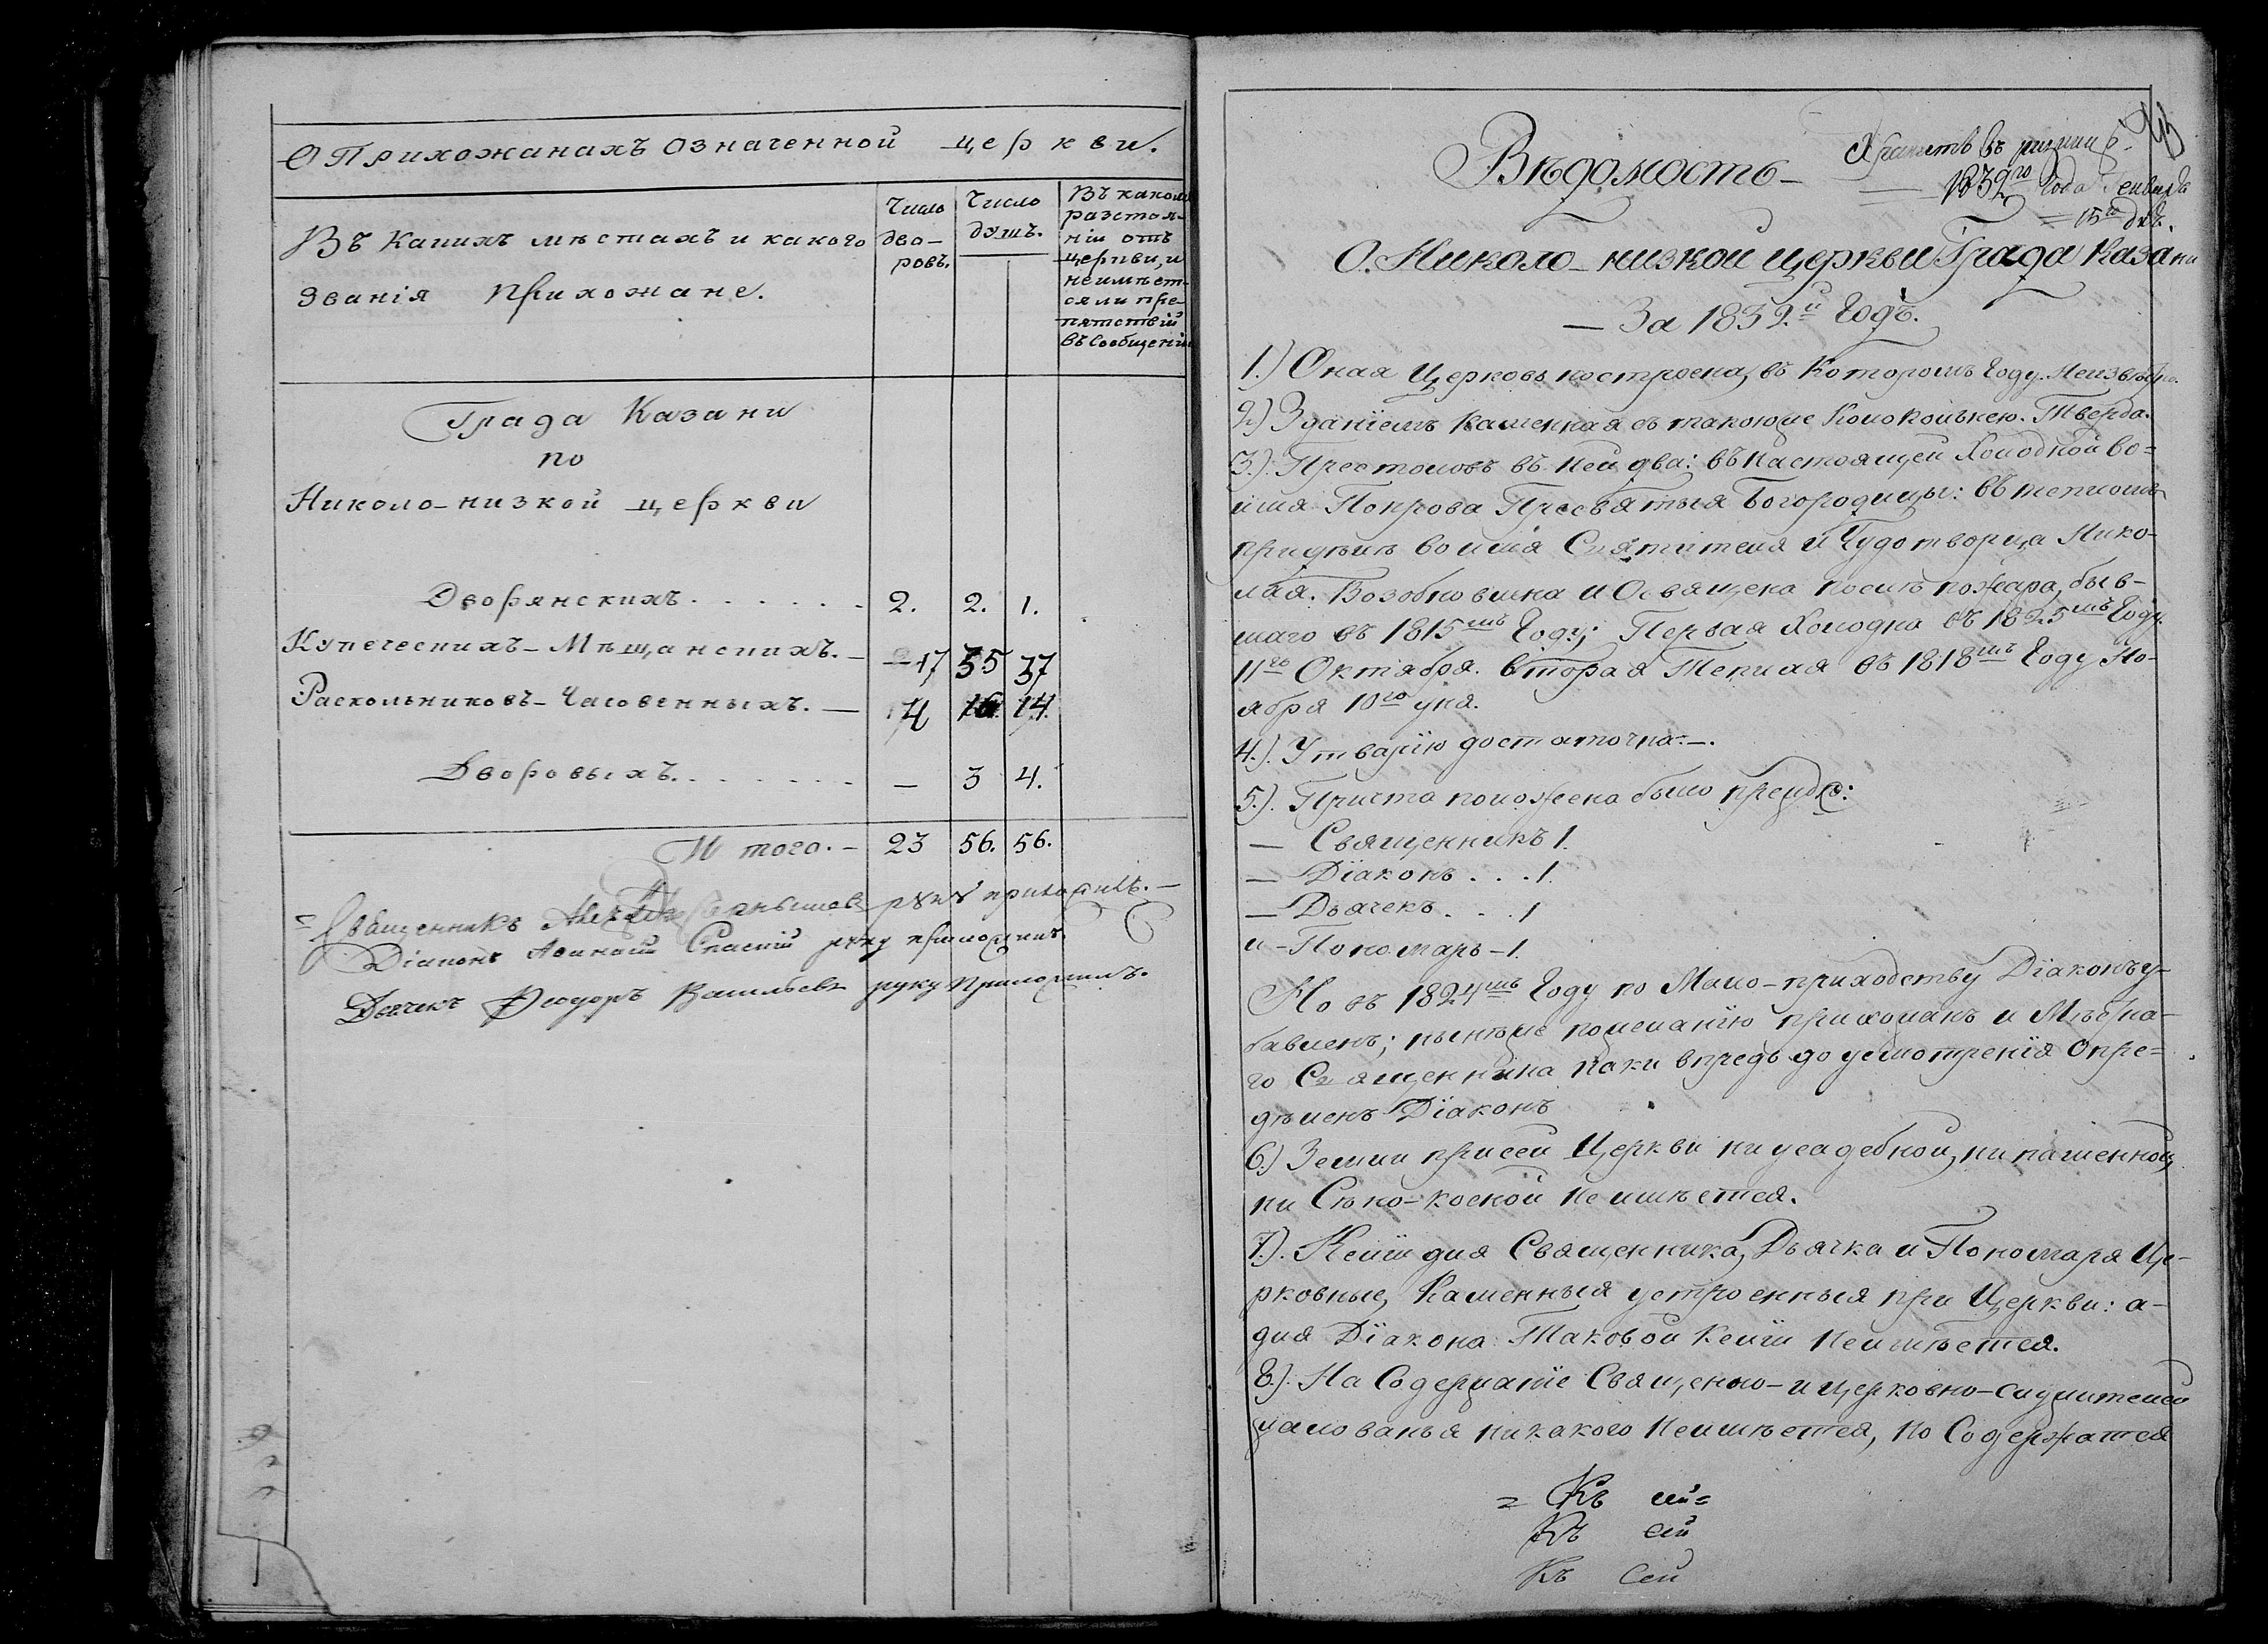 О Прихожанахъ означенной церкви.
Въ какихъ мѣстахъ и какого
званія прихожане.
Число
дво-
ровъ.
Число
душъ.
Въ какомъ
разстоя-
ніи отъ
церкви, и
неимѣет-
ся ли пре-
пятствій
въ сообщеніи
Града Казани
по
Николо-низкой церкви
Дворянскихъ. . . . . . . 2. 2. 1.
Купеческихъ-Мѣщанскихъ. — 17 35 37
Раскольниковъ-Часовенныхъ. — 4 16 14.
Дворовыхъ. . . . . . . — 3 4.
Итого. — 23 56. 56.
Священникъ руку приложилъ. —
Діаконъ Спаскій руку приложилъ
Дьячекъ Ѳеодоръ Васильевъ руку приложилъ.
Вѣдомость —
1832го Года Генваря
15го дня.
О. Николо-низкой церкви Града Казани
— За 1832.й Годъ.
1.) Оная Церковь построена, въ Которомъ Году. Неизвѣстно.
2.) Зданіемъ Каменная съ такоюже Колокольнею. Тверда.
3.). Престоловъ въ ней два: въ Настоящей Холодной во-
имя Покрова Пресвятыя Богородицы: въ тепломъ
придѣлѣ во имя Святителя и Чудотворца Нико-
лая. Возобновлена и Освящена послѣ пожара, быв-
шаго въ 1815мъ Году; Первая Холодна въ 1825мъ Году.
11го Октября. Вторая Теплая въ 1818мъ Году Но-
ября 10го дня.
4.). Утварію достаточна.—.
5.). Причта положена было прежде:
— Священникъ 1.
— Діаконъ . . . 1.
— Дьячекъ . . . 1
и — Пономарь — 1.
Но въ 1824мъ Году по Мало-приходству Діаконъ у-
бавленъ; нынѣже по желанію прихожанъ и Мѣстна-
го Священника паки впредь до усмотренія Опре-
дѣленъ Діаконъ
6.) Земли при сей Церкви ни усадебной, ни пашенной,
ни Сѣно-косной не имѣется.
7.). Келіи для Священника, Дьячка и Пономаря Це-
рковные, Каменныя устроенныя при Церкви: а-
для Діакона Таковой Келіи Неимѣется.
8.). На Содержаніе Священно-и Церковно-служителей
жалованья никакого Неимѣется, но Содержатся
= Къ сей =
Къ сей
Къ Сей